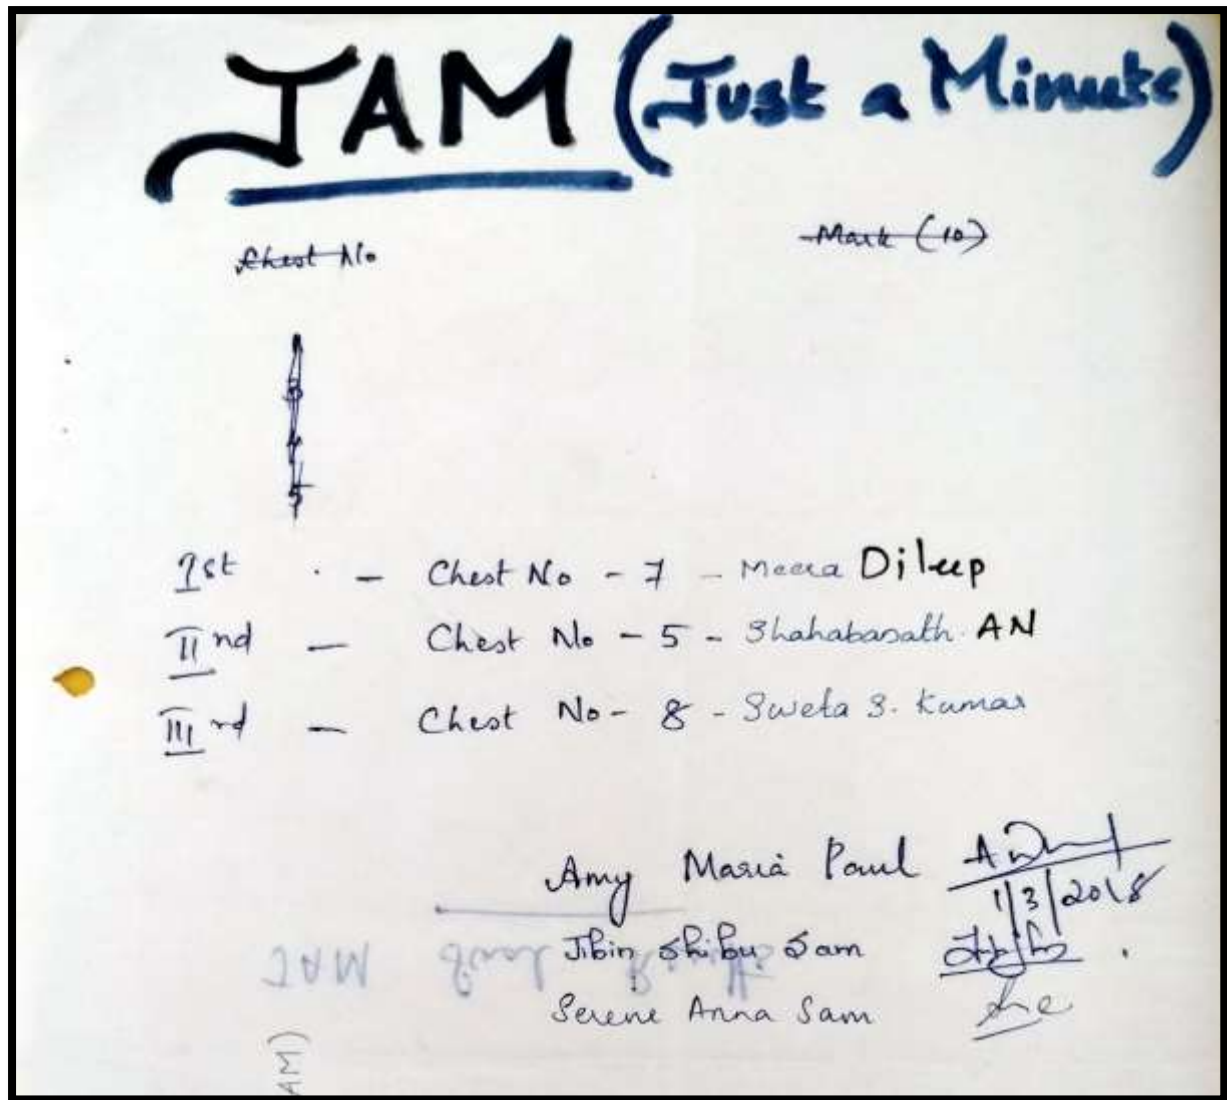 JAM (Just a Minute)
Chest No Mark (10)
3
4
5
Ist - Chest No - 7 - Meera Dileep
IInd - Chest No - 5 - Shahabasath AN
IIIrd - Chest No - 8 - Sweta S. Kumar
Amy Maria Paul
1/3/2018
Jibin Shibu Sam
Serene Anna Sam
JAM Final Results
AM)